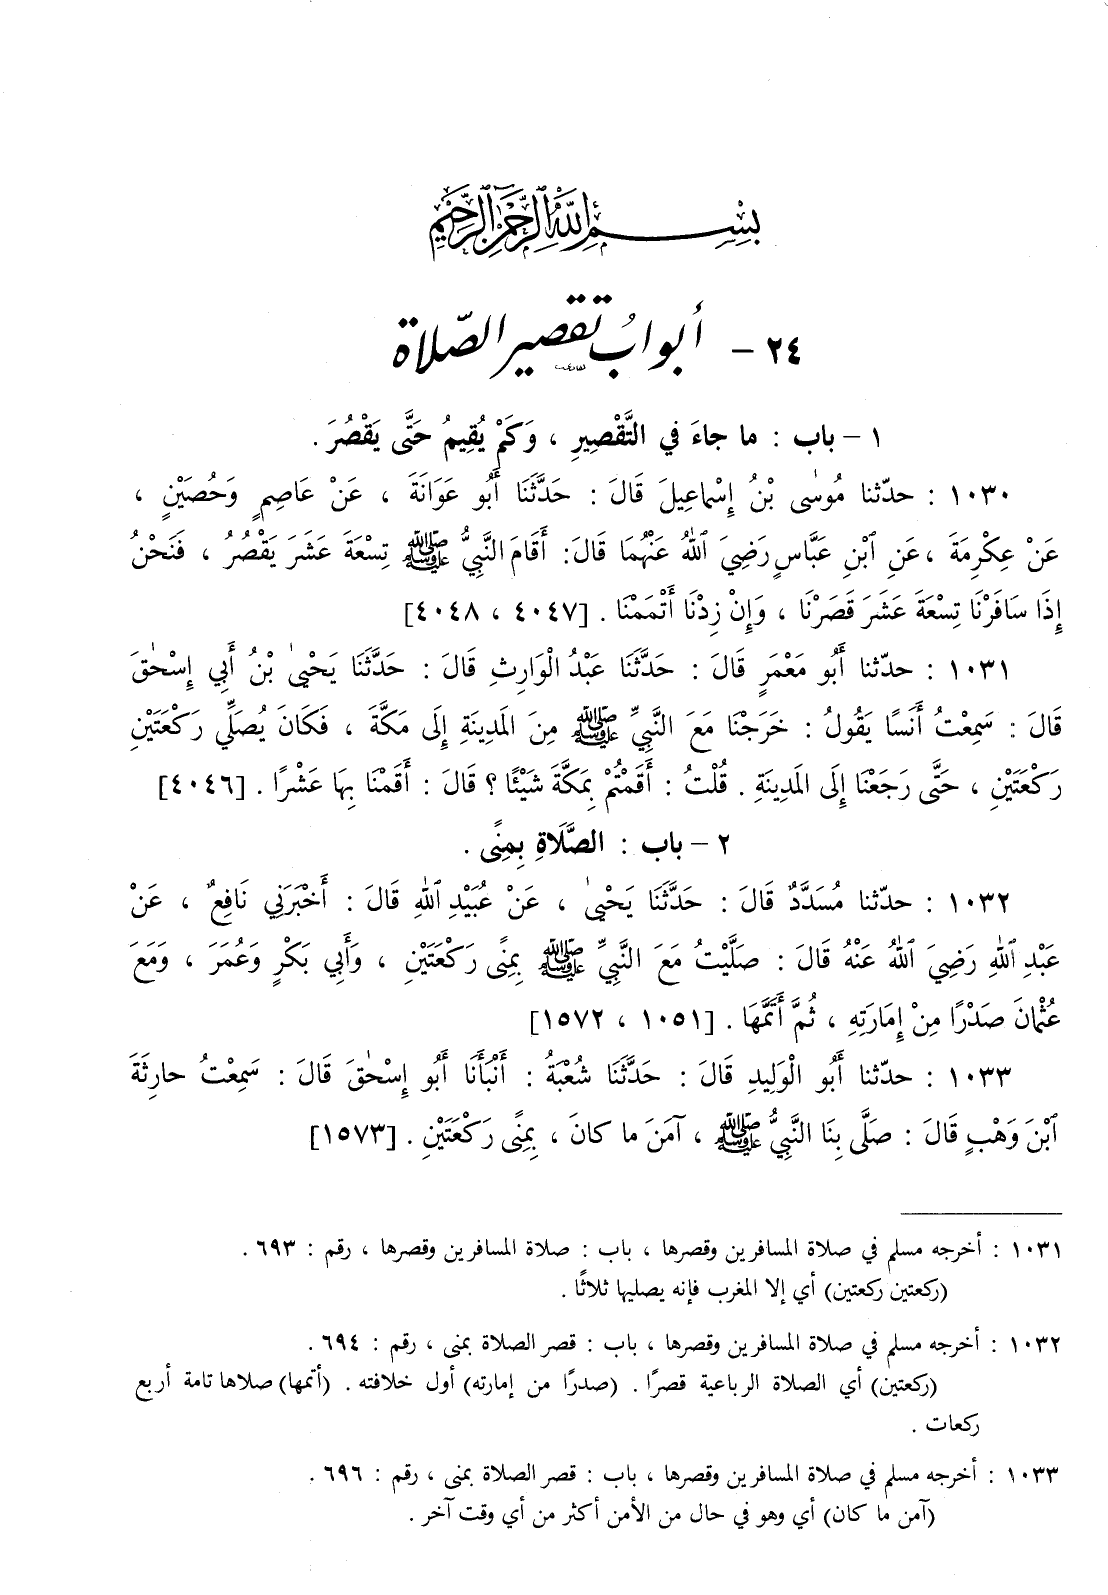 بِسْمِ اللهِ الرَّحْمٰنِ الرَّحِيمِ
٢٤ - أبوابُ تقصير الصّلاة
١ - باب : ما جاءَ في التَّقْصِيرِ ، وَكَمْ يُقِيمُ حَتَّى يَقْصُرَ .
١٠٣٠ : حدّثنا مُوسٰى بْنُ إِسْماعِيلَ قَالَ : حَدَّثَنَا أَبُو عَوَانَةَ ، عَنْ عَاصِمٍ وَحُصَيْنٍ ،
عَنْ عِكْرِمَةَ ، عَنِ ٱبْنِ عَبَّاسٍ رَضِيَ ٱللهُ عَنْهُمَا قَالَ : أَقَامَ النَّبِيُّ ﷺ تِسْعَةَ عَشَرَ يَقْصُرُ ، فَنَحْنُ
إِذَا سَافَرْنَا تِسْعَةَ عَشَرَ قَصَرْنَا ، وَإِنْ زِدْنَا أَتْمَمْنَا . [٤٠٤٧ ، ٤٠٤٨]
١٠٣١ : حدّثنا أَبُو مَعْمَرٍ قَالَ : حَدَّثَنَا عَبْدُ الْوَارِثِ قَالَ : حَدَّثَنَا يَحْيىٰ بْنُ أَبِي إِسْحٰقَ
قَالَ : سَمِعْتُ أَنَسًا يَقُولُ : خَرَجْنَا مَعَ النَّبِيِّ ﷺ مِنَ المَدِينَةِ إِلَى مَكَّةَ ، فَكَانَ يُصَلِّي رَكْعَتَيْنِ
رَكْعَتَيْنِ ، حَتَّى رَجَعْنَا إِلَى المَدِينَةِ . قُلْتُ : أَقَمْتُمْ بِمَكَّةَ شَيْئًا ؟ قَالَ : أَقَمْنَا بِهَا عَشْرًا . [٤٠٤٦]
٢ - باب : الصَّلَاةِ بِمِنًى .
١٠٣٢ : حدّثنا مُسَدَّدٌ قَالَ : حَدَّثَنَا يَحْيىٰ ، عَنْ عُبَيْدِ ٱللهِ قَالَ : أَخْبَرَنِي نَافِعٌ ، عَنْ
عَبْدِ ٱللهِ رَضِيَ ٱللهُ عَنْهُ قَالَ : صَلَّيْتُ مَعَ النَّبِيِّ ﷺ بِمِنًى رَكْعَتَيْنِ ، وَأَبِي بَكْرٍ وَعُمَرَ ، وَمَعَ
عُثْمانَ صَدْرًا مِنْ إِمَارَتِهِ ، ثُمَّ أَتَمَّهَا . [١٠٥١ ، ١٥٧٢]
١٠٣٣ : حدّثنا أَبُو الْوَلِيدِ قَالَ : حَدَّثَنَا شُعْبَةُ : أَنْبَأَنَا أَبُو إِسْحٰقَ قَالَ : سَمِعْتُ حارِثَةَ
ٱبْنَ وَهْبٍ قَالَ : صَلَّى بِنَا النَّبِيُّ ﷺ ، آمَنَ ما كانَ ، بِمِنًى رَكْعَتَيْنِ . [١٥٧٣]
١٠٣١ : أخرجه مسلم في صلاة المسافرين وقصرها ، باب : صلاة المسافرين وقصرها ، رقم : ٦٩٣ .
(ركعتين ركعتين) أي إلا المغرب فإنه يصليها ثلاثًا .
١٠٣٢ : أخرجه مسلم في صلاة المسافرين وقصرها ، باب : قصر الصلاة بمنى ، رقم : ٦٩٤ .
(ركعتين) أي الصلاة الرباعية قصرًا . (صدرًا من إمارته) أول خلافته . (أتمها) صلاها تامة أربع
ركعات .
١٠٣٣ : أخرجه مسلم في صلاة المسافرين وقصرها ، باب : قصر الصلاة بمنى ، رقم : ٦٩٦ .
(آمن ما كان) أي وهو في حال من الأمن أكثر من أي وقت آخر .